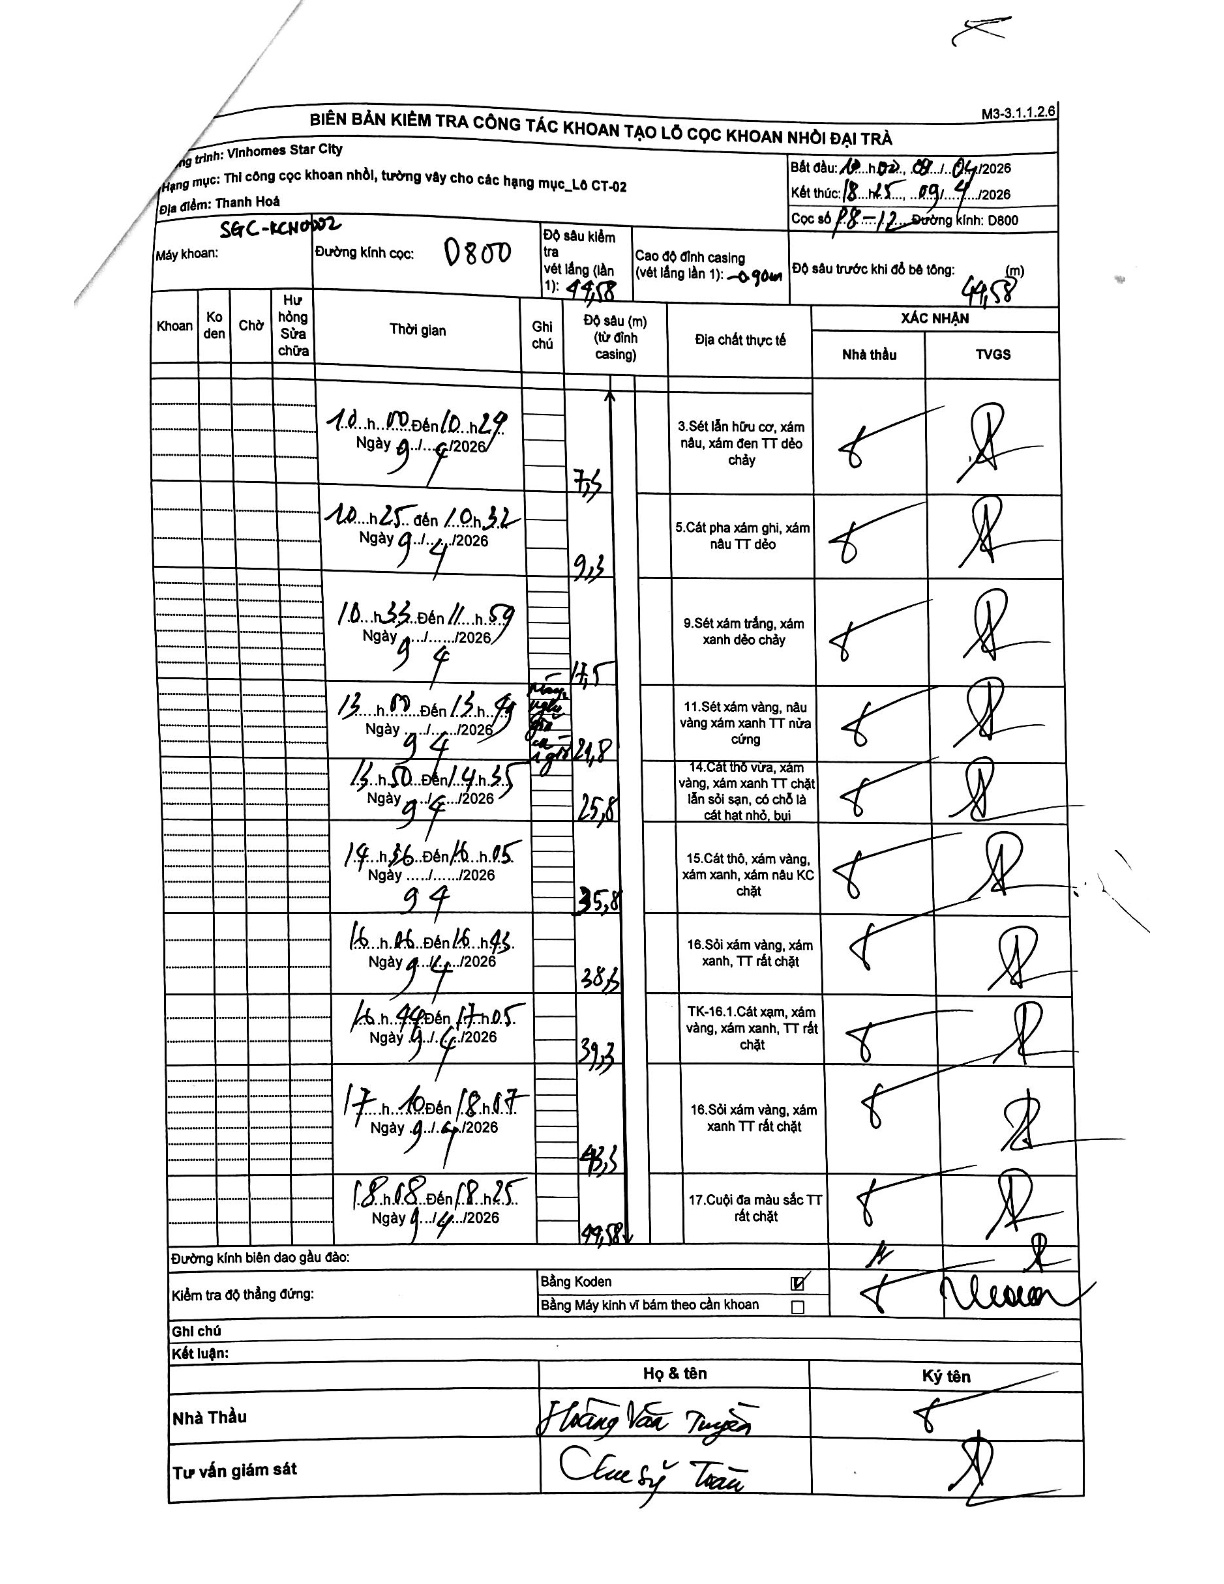 M3-3.1.1.2.6
BIÊN BẢN KIỂM TRA CÔNG TÁC KHOAN TẠO LỖ CỌC KHOAN NHỒI ĐẠI TRÀ
ng trình: Vinhomes Star City
Hạng mục: Thi công cọc khoan nhồi, tường vây cho các hạng mục_Lô CT-02
Địa điểm: Thanh Hoá
Bắt đầu: 10 h00, 09/04/2026
Kết thúc: 18 h25, 09/4/2026
Cọc số P8-12 Đường kính: D800
Máy khoan: SGC-KCN0002
Đường kính cọc: D800
Độ sâu kiểm tra
vét lắng (lần
1): 44,58
Cao độ đỉnh casing
(vét lắng lần 1): -0.90m
Độ sâu trước khi đổ bê tông: 44,58 (m)
Khoan
Ko
den
Chờ
Hư
hỏng
Sửa
chữa
Thời gian
Ghi
chú
Độ sâu (m)
(từ đỉnh
casing)
Địa chất thực tế
XÁC NHẬN
Nhà thầu
TVGS
10 h 00 Đến 10 h 24
Ngày 9/4/2026
7,5
3.Sét lẫn hữu cơ, xám
nâu, xám đen TT dẻo
chảy
10 h 25 đến 10 h 32
Ngày 9/4/2026
9,3
5.Cát pha xám ghi, xám
nâu TT dẻo
10 h 33 Đến 11 h 59
Ngày 9/4/2026
17,5
9.Sét xám trắng, xám
xanh dẻo chảy
13 h 00 Đến 13 h 49
Ngày 9/4/2026
nghỉ
21,8
11.Sét xám vàng, nâu
vàng xám xanh TT nửa
cứng
13 h 50 Đến 14 h 35
Ngày 9/4/2026
25,8
14.Cát thô vừa, xám
vàng, xám xanh TT chặt
lẫn sỏi sạn, có chỗ là
cát hạt nhỏ, bụi
14 h 36 Đến 16 h 05
Ngày 9/4/2026
35,8
15.Cát thô, xám vàng,
xám xanh, xám nâu KC
chặt
16 h 06 Đến 16 h 43
Ngày 9/4/2026
38,3
16.Sỏi xám vàng, xám
xanh, TT rất chặt
16 h 44 Đến 17 h 05
Ngày 9/4/2026
39,3
TK-16.1.Cát xạm, xám
vàng, xám xanh, TT rất
chặt
17 h 10 Đến 18 h 07
Ngày 9/4/2026
43,3
16.Sỏi xám vàng, xám
xanh TT rất chặt
18 h 08 Đến 18 h 25
Ngày 9/4/2026
44,58
17.Cuội đa màu sắc TT
rất chặt
Đường kính biên dao gầu đào:
Kiểm tra độ thẳng đứng:
Bằng Koden
Bằng Máy kinh vĩ bám theo cần khoan
Ghi chú
Kết luận:
Họ & tên
Ký tên
Nhà Thầu
Hoàng Văn Tuyền
Tư vấn giám sát
Chu Sỹ Toàn